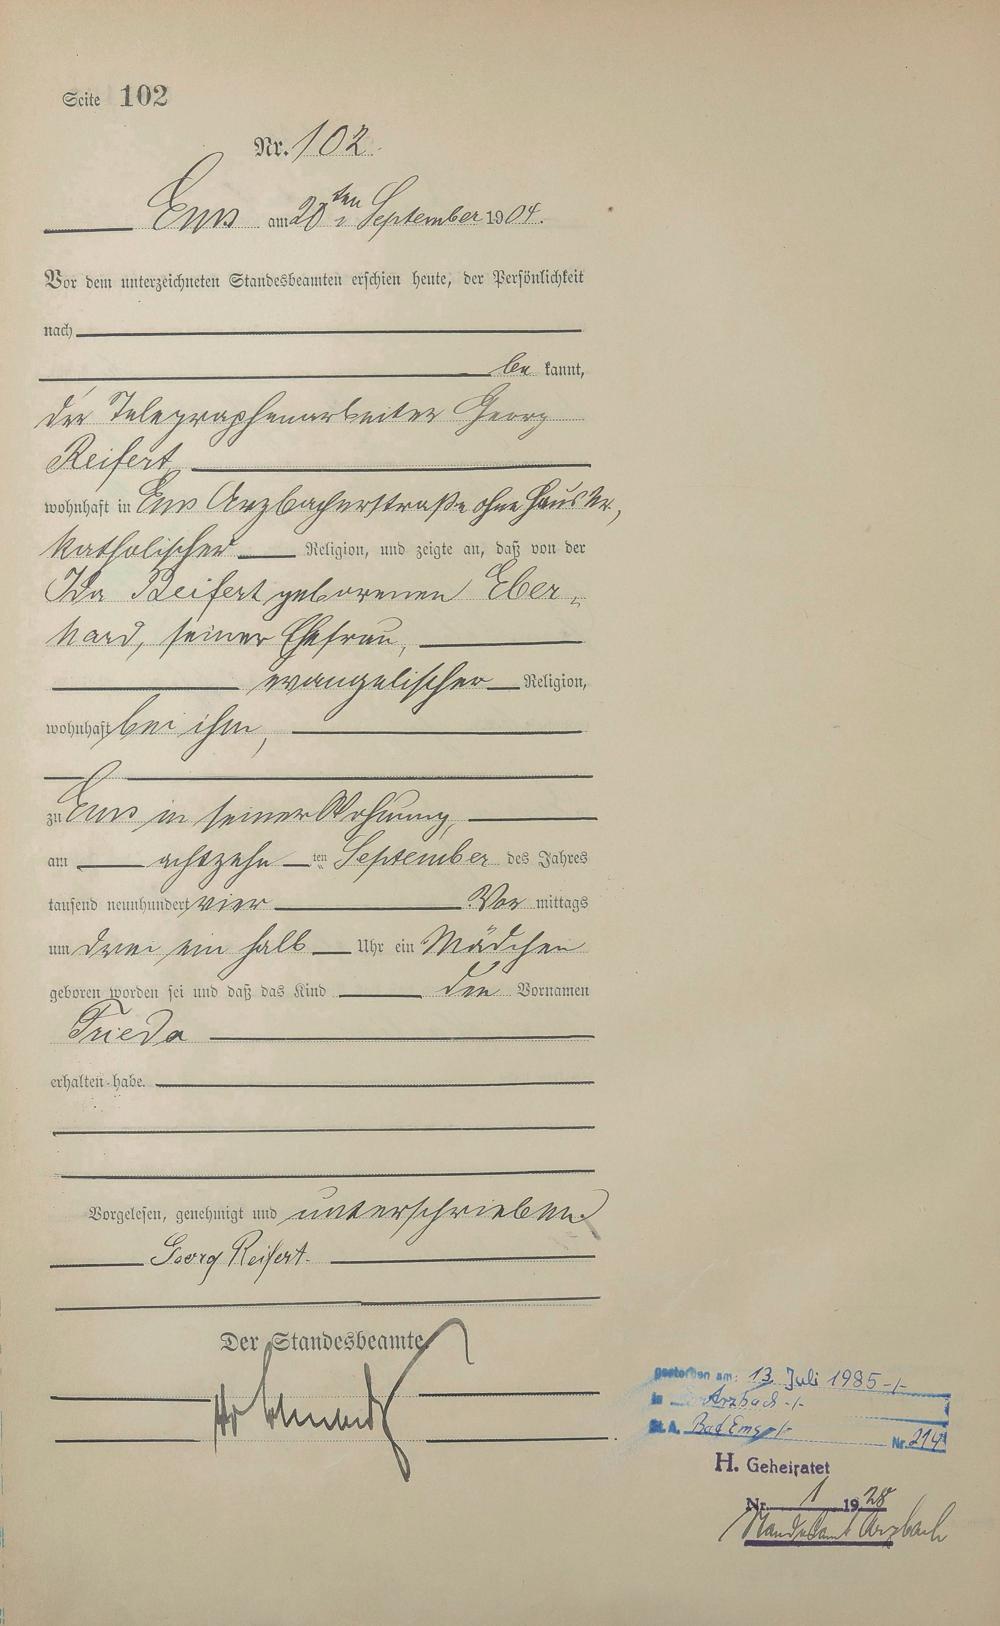 Seite 102
Nr. 102.
Ems am 20ten September 1904.
Vor dem unterzeichneten Standesbeamten erschien heute, der Persönlichkeit
nach
be kannt,
der Telegraphenarbeiter Georg
Reifert
wohnhaft in Ems Arzbacherstraße ohne Haus Nr,
katholischer Religion, und zeigte an, daß von der
Ida Reifert geborenen Eber-
hard, seiner Ehefrau,
evangelischer Religion,
wohnhaft bei ihm,
zu Ems in seiner Wohnung,
am achtzehn ten September des Jahres
tausend neunhundert vier Vor mittags
um drei ein halb Uhr ein Mädchen
geboren worden sei und daß das Kind den Vornamen
Frieda
erhalten habe.
Vorgelesen, genehmigt und unterschrieben
Georg Reifert.
Der Standesbeamte.
gestorben am: 13. Juli 1985 -/-
in Arzbach -/-
St. A. Bad Ems -/- Nr. 214
H. Geheiratet
Nr. 1 1928
Standesamt Arzbach